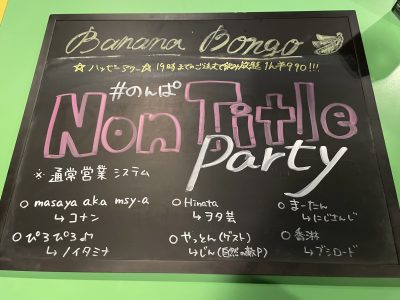 Banana Bongo
☆ハッピーアワー☆ 19時までのご注文で飲み放題 1h半990!!!
#のんぱ
Non Title
Party
※通常営業システム
○ masaya aka msy-a
↳ コナン
○ Hinata
↳ ヲタ芸
○ まーたん
↳ にじさんじ
○ ぴろぴろ♪
↳ ノイタミナ
○ やっとん(ゲスト)
↳ じん(自然の敵P)
○ 香淋
↳ ブシロード